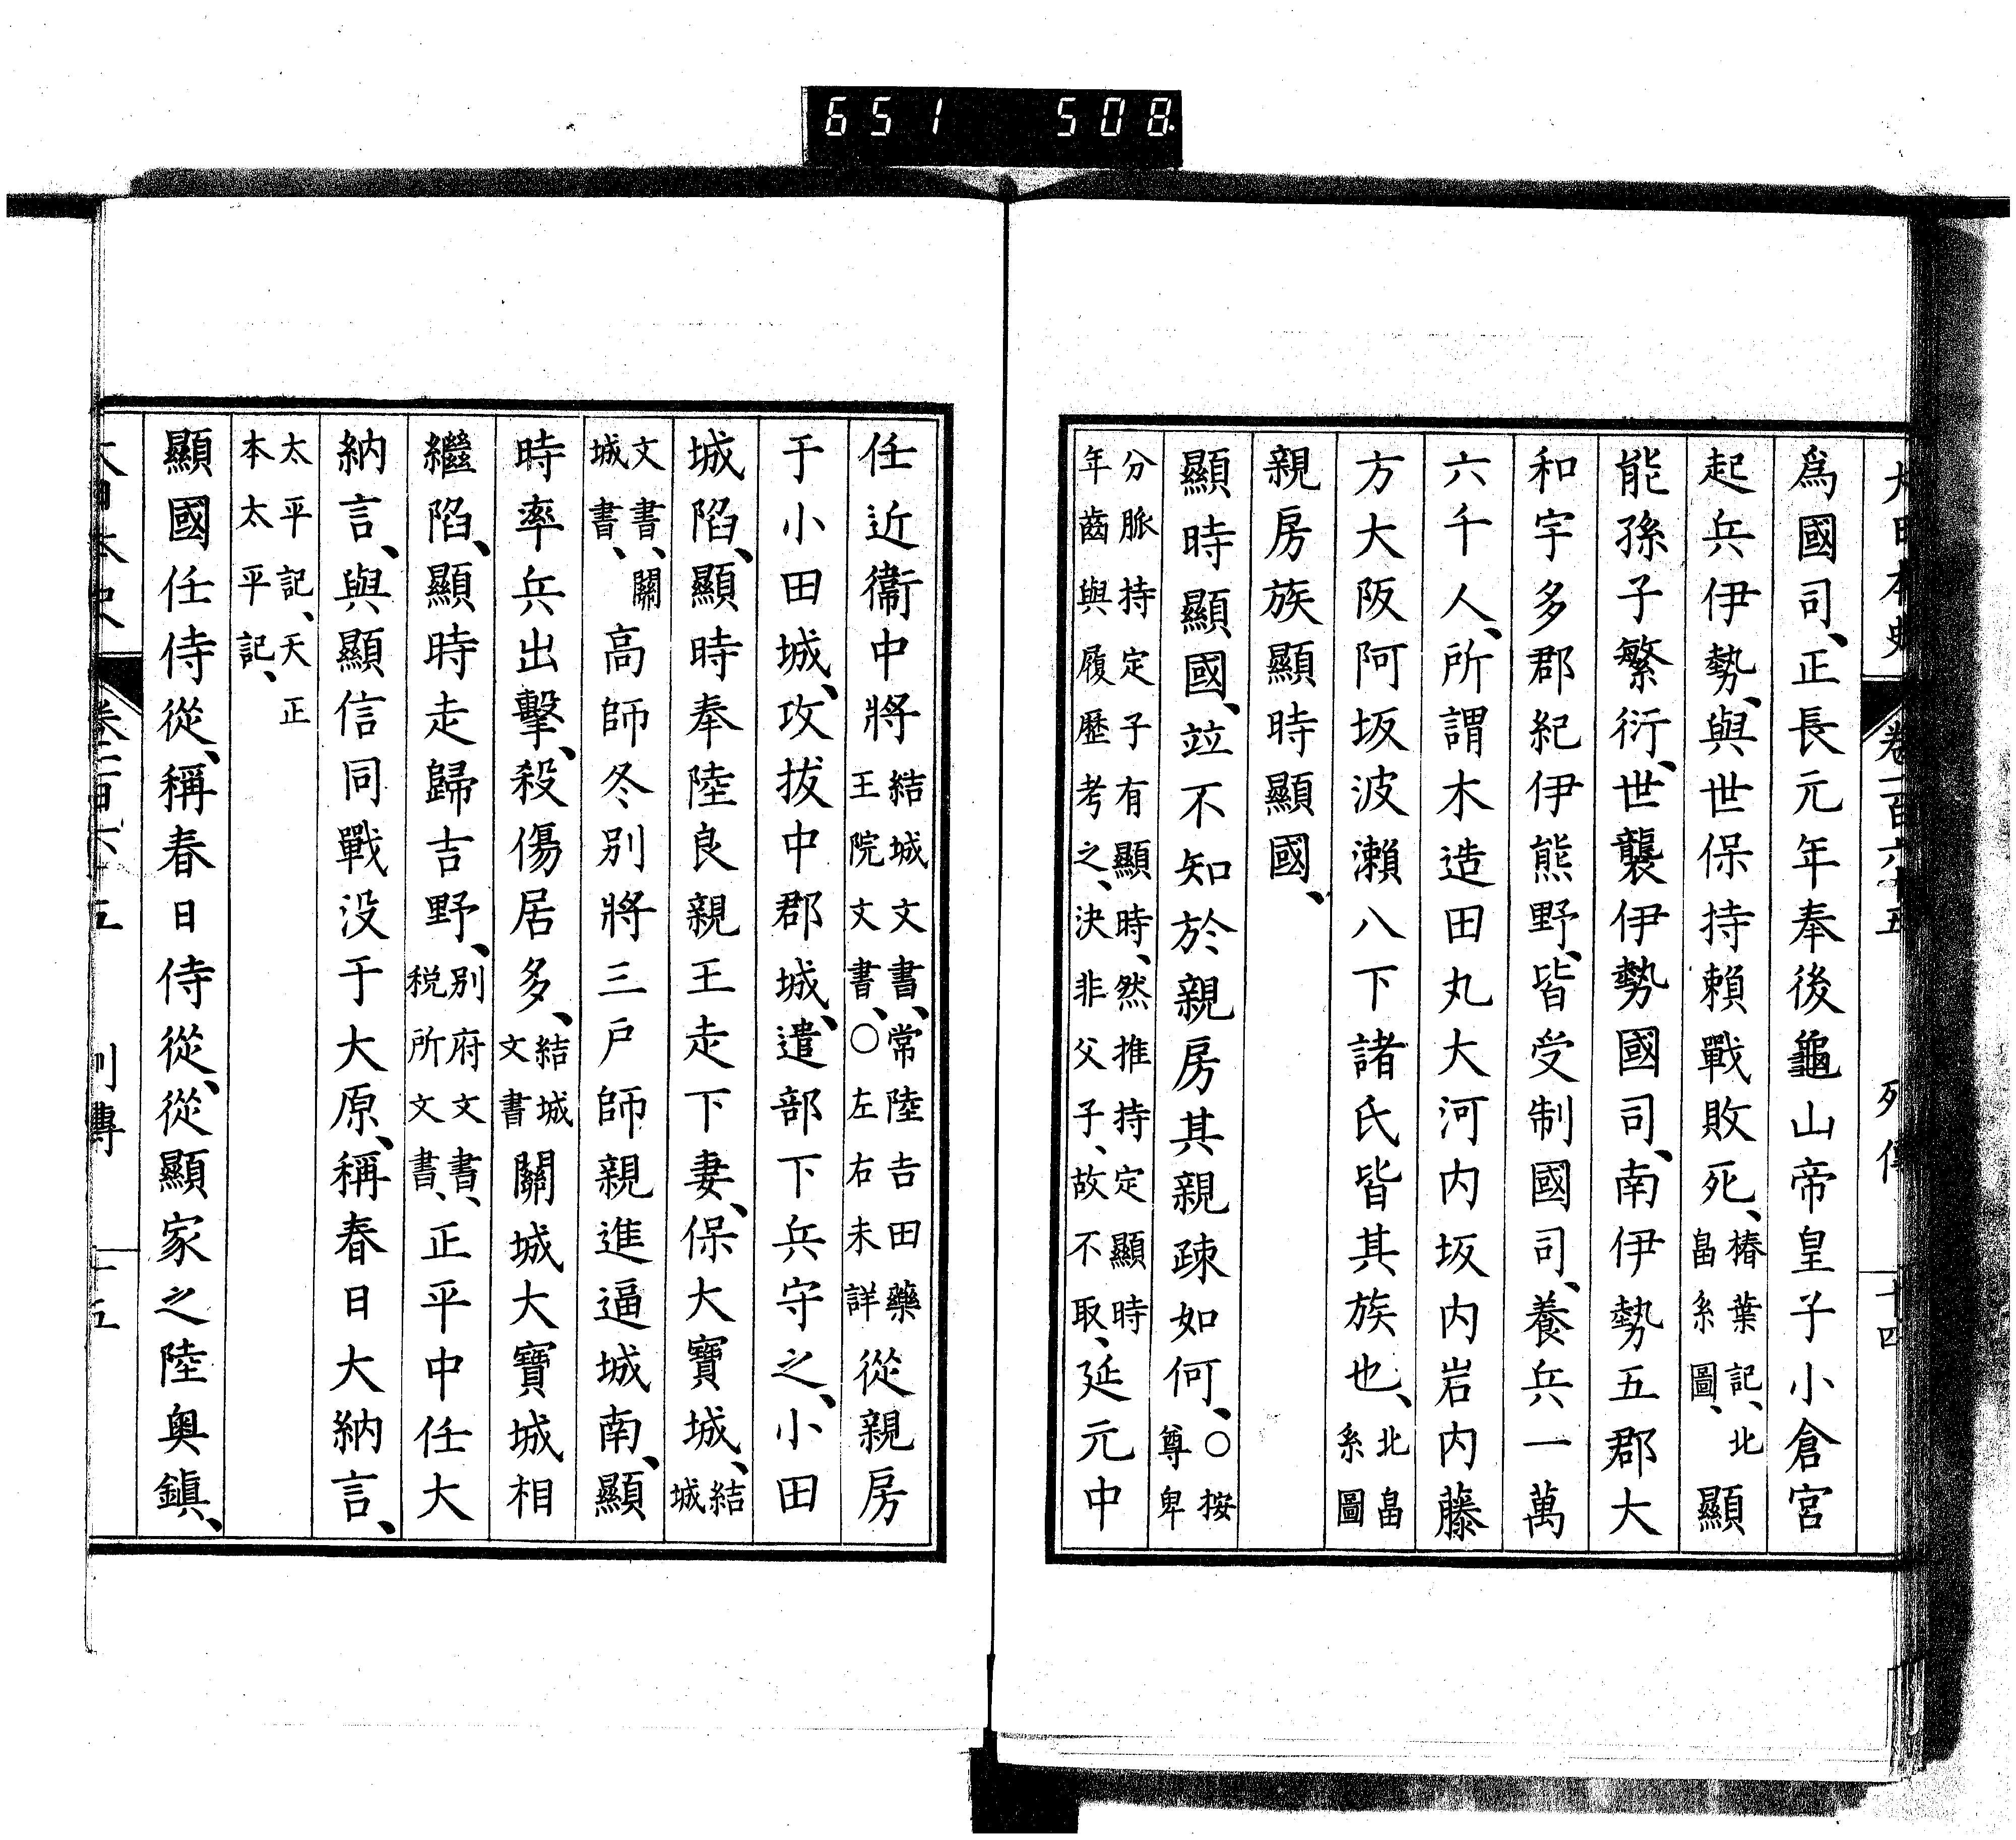 651 508
大日本史 卷一百六十五 列傳 十四
爲國司、正長元年奉後龜山帝皇子小倉宮
起兵伊勢、與世保持賴戰敗死、椿葉記、北畠系圖、顯
能孫子繁衍、世襲伊勢國司、南伊勢五郡大
和宇多郡紀伊熊野、皆受制國司、養兵一萬
六千人、所謂木造田丸大河内坂内岩内藤
方大阪阿坂波瀨八下諸氏皆其族也、北畠系圖
親房族顯時顯國、
顯時顯國、竝不知於親房其親疎如何、○按尊卑
分脈持定子有顯時、然推持定顯時年齒與履歷考之、決非父子、故不取、延元中
任近衞中將結城文書、常陸吉田藥王院文書、○左右未詳從親房
于小田城、攻拔中郡城、遣部下兵守之、小田
城陷、顯時奉陸良親王走下妻、保大寶城、結城
文書、關城書、高師冬別將三戶師親進逼城南、顯
時率兵出擊、殺傷居多、結城文書關城大寶城相
繼陷、顯時走歸吉野、別府文書、税所文書、正平中任大
納言、與顯信同戰没于大原、稱春日大納言、
太平記、天正本太平記、
顯國任侍從、稱春日侍從、從顯家之陸奥鎮、
大日本史 卷一百六十五 列傳 十五